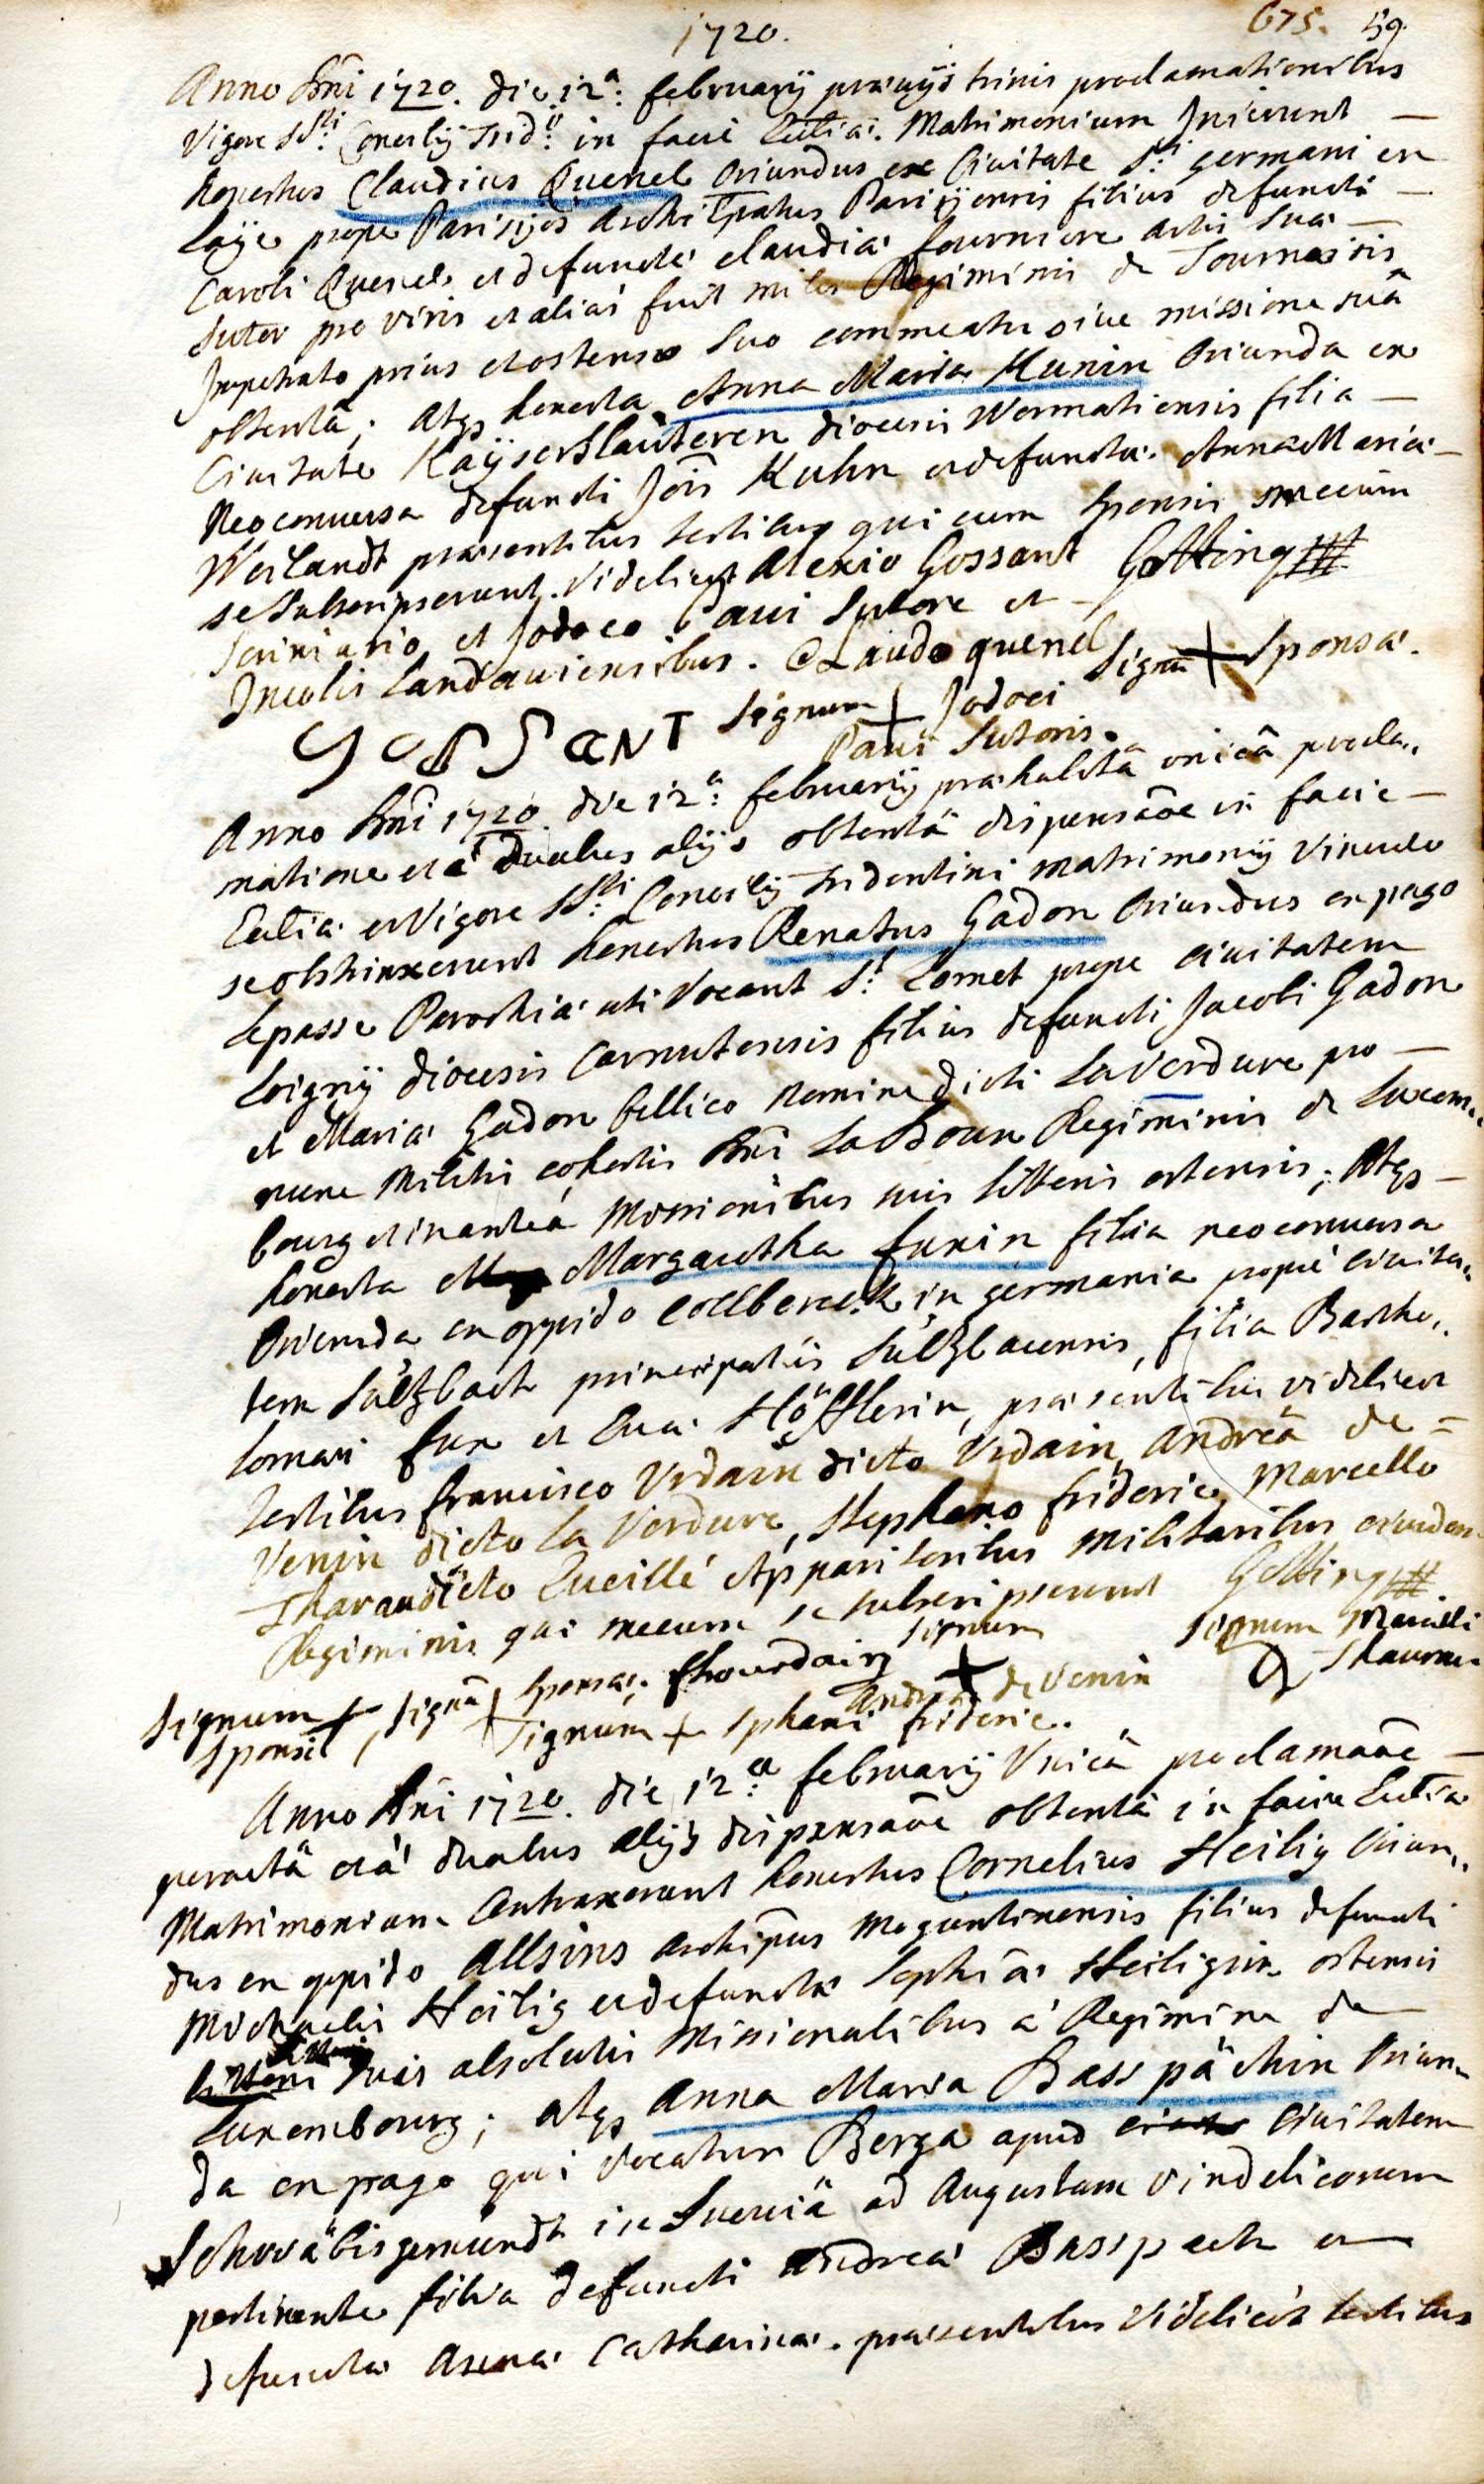 1720.
675. 59.
Anno Dñi 1720. die 12ª: februarÿ præviis trinis proclamationibus
Vigore SSti: Concilÿ Trid:ni in facie Ecclæ. Matrimonium Inierunt —
honestus Claudius Quenel Oriundus ex Civitate Sti: germani en
Laÿe prope Parisÿos Archi Epatus Parisÿensis filius defuncti —
Caroli Quenel et defunctæ claudiæ fourniere artis suæ —
sutor pro viris et aliàs fuit miles Regiminis de Tournaisis
Impetrato prius et ostenso suo commeatu sive missione suâ
obtentâ; atqs honesta Anna Maria Kunin Oriunda ex
Civitate Kaÿserslauteren diocesis Wormatiensis filia —
Neoconversa defuncti Jois Kuhn et defunctæ Annæ Mariæ —
Weilandt præsentibus testibus qui cum sponsis mecum
se subscripserunt. Videlicet Alexio Gossant Gölting
scriniario et Jodoco Paui sutore et —
Incolis Landaviensibus. CLaude quenel Signũ + Sponsæ.
GOSSANT Signum + Jodoci
Paui Sutoris.
Anno Dñi 1720. die 12ª: februarÿ præhabitâ unicâ procla„
matione et à duabus alÿs obtentâ dispensãoe in facie —
Ecclæ et Vigore SSti: Concilÿ Tridentini matrimonÿ vinculo
se obstrinxerunt honestus Renatus Gadon Oriundus ex pago
Lepasse Parochiæ uti vocant St: Lomet prope civitatem
Loignÿ diocesis Carnutensis filius defuncti Jacobi Gadon
et Mariæ Gadon bellico nomine dicti La Verdure pro —
nunc Militis cohortis Dñi La Doun Regiminis de Luxem„
bourg et in anteà missionibus suis litteris ostensis; Atqs —
honesta Margaretha funin filia neoconversa
Oriunda ex oppido Collberck in germania propè civita„
tem Sultzbach principatûs Sultzbacensis, filia Bartho„
lomæi fun et Evæ Höfflerin, præsentibus videlicet
testibus francisco Urdain dicto Urdain, Andreâ de =
Venin dicto la Verdure, Stephano frideric, Marcello
Tharau dicto Lucillé Apparitoribus militaribus eiusdem
Regiminis qui mecum se subscripserunt Gölting
Signum + Sponsi, Signũ + Sponsæ. fhourdain Signum + Andreæ de Venin Signum Marcelli Tharau
Signum + Sphani frideric.
Anno Dñi 1720. die 12ª: februarÿ Unicâ proclamãoe —
peractâ et à duabus alÿs dispensãoe obtentâ in facie Ecclæ
Matrimonium Contraxerunt honestus Cornelius Heilig Oriun„
dus ex oppido Allsins Archiepũs Moguntinensis filius defuncti
Michaelis Heilig et defunctæ Sophiæ Heiligin ostensis
litteris suis absolutis Missionalibus à Regimine de
Luxembourg; atqs Anna Maria Basspächin Oriun„
da ex pago qui vocatur Berga apud Civitatem
Schwäbisgemündt in Sueviâ ad Augustam Vindelicorum
pertinente filia defuncti Andreæ Basspech et —
defunctæ Annæ Catharinæ. præsentibus Videlicèt testibus